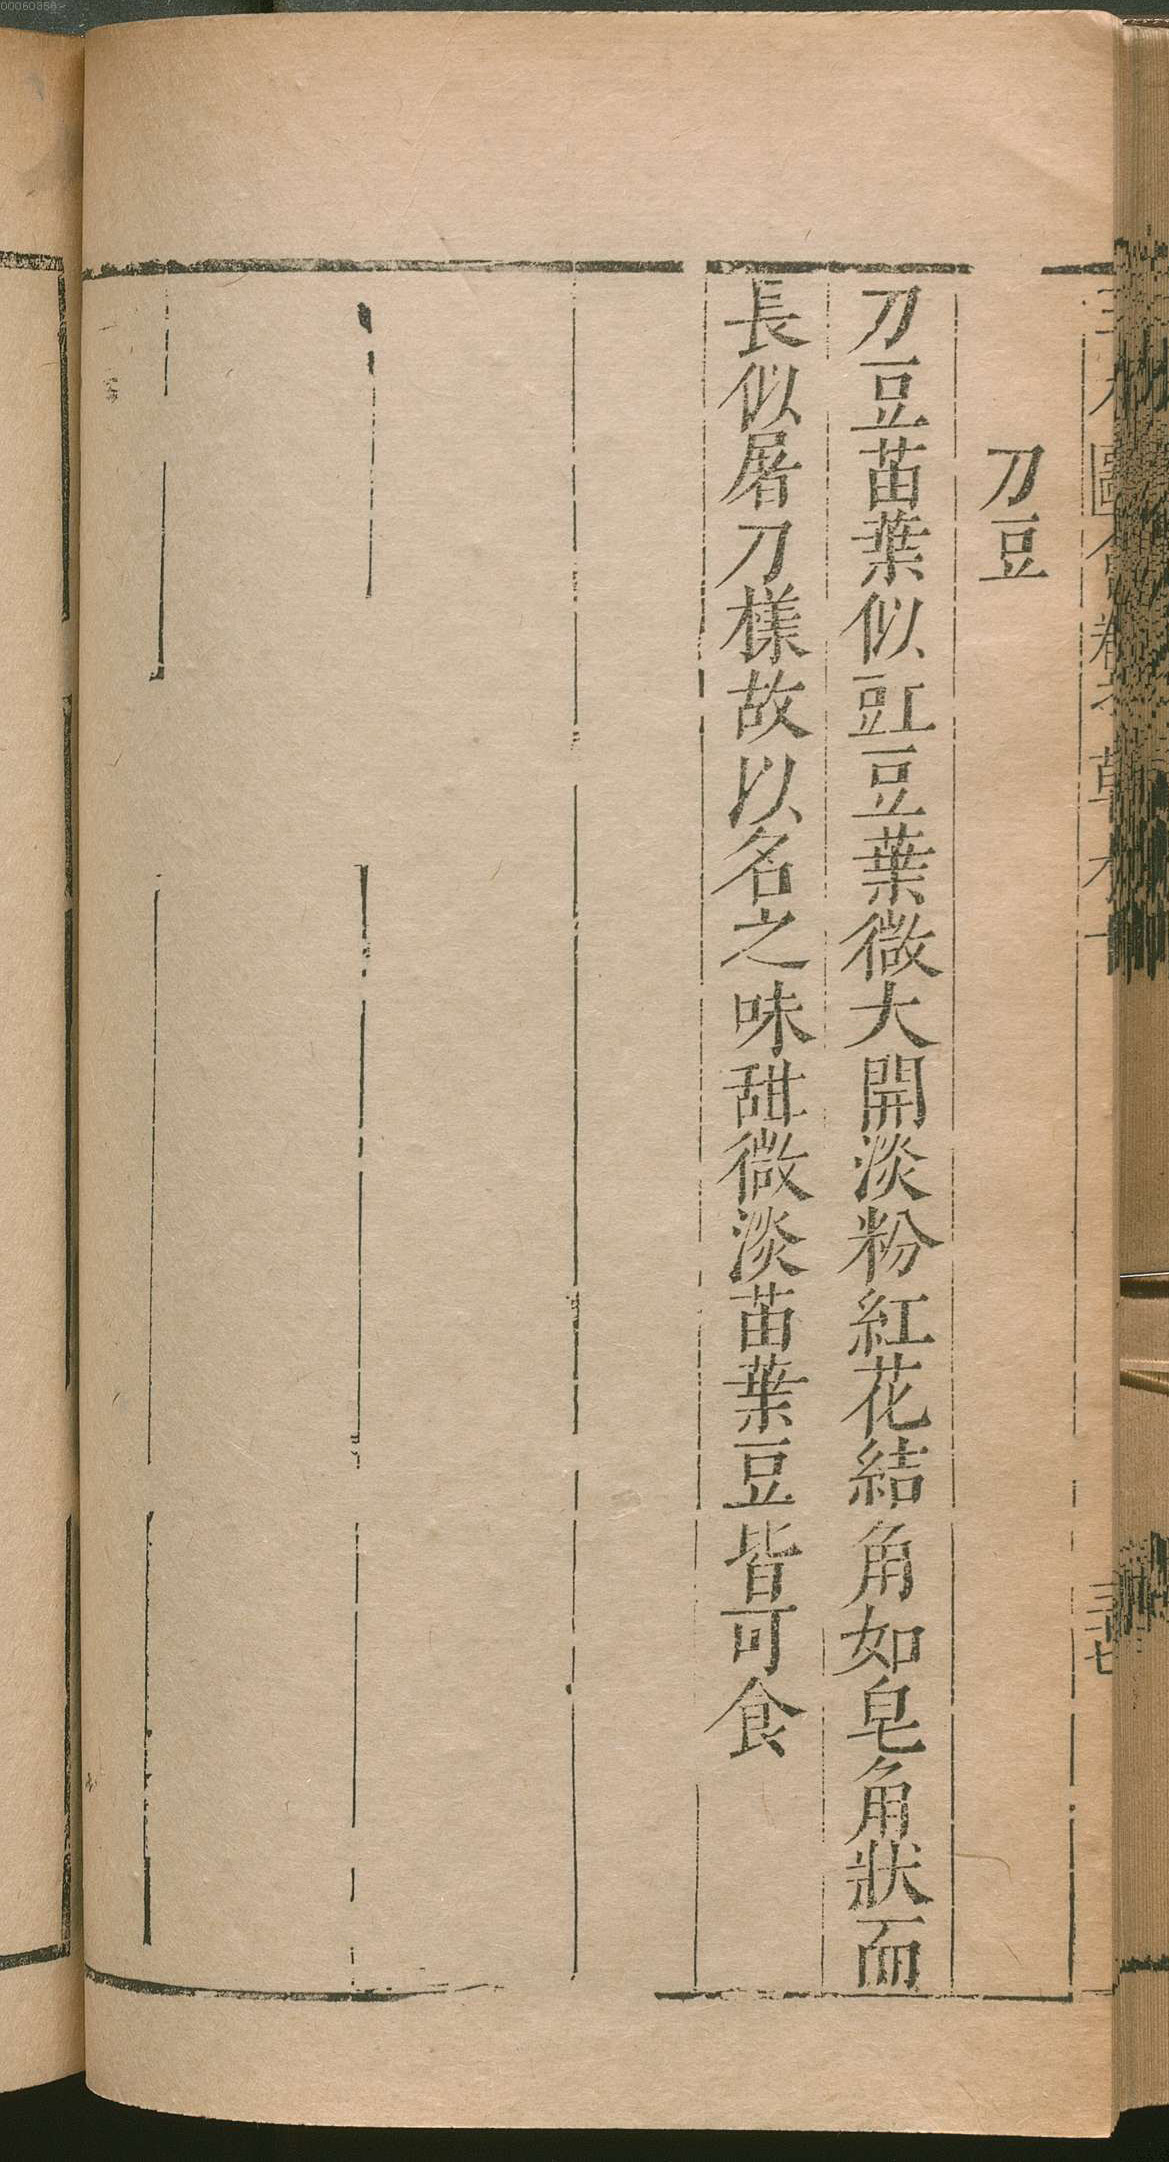 刀豆
刀豆苗葉似豇豆葉微大開淡粉紅花結角如皂角狀而
長似屠刀樣故以名之味甜微淡苗葉豆皆可食
三十七
00060358